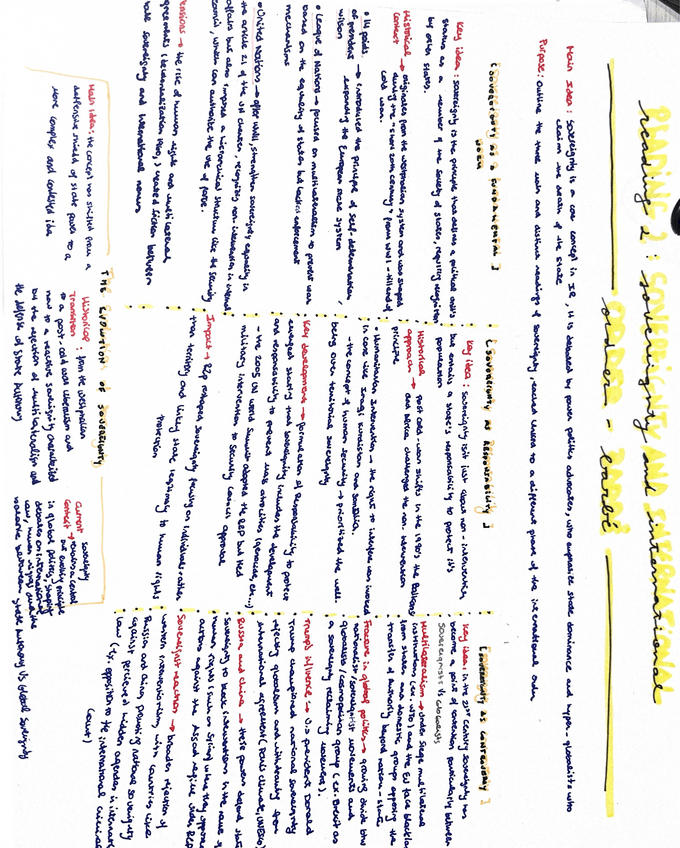 READING 2: SOVEREIGNTY AND INTERNATIONAL
reading 2: sovereignty and international
ORDER - BARBÉ
order - barbé
Main Idea: Sovereignty is a core concept in IR, it is debated by power politics advocates, who emphasize state dominance and hyper-globalists who
claim the death of the state
Purpose: Outline the three main and distinct readings of sovereignty, each tied to a different phase of the international order
[SOVEREIGNTY AS A FUNDAMENTAL]
Key idea: sovereignty is the principle that defines a political
states as a member of the society of states, requiring recognition
by other states.
Historical → originates from the westphalian system and was shaped
context during the "short 20th century" from WWI - till end of
cold war.
14 points → introduced the principle of self-determination,
of president expanding the European state system
wilson
• League of Nations → focused on multilateralism to prevent war
based on the equality of states, but lacked enforcement
mechanisms
• United Nations → after WWII, strengthen sovereignty equality in
the article 2.1 of the UN charter, recognizing non-intervention in internal
affairs but also imposed a hierarchical structure like the security
council, which can authorize the use of force.
Tensions → the rise of human rights and multilateral
created friction between
state sovereignty and international norms
[SOVEREIGNTY AS RESPONSIBILITY]
Key idea: sovereignty isn't just about non-intervention,
but entails a state's responsibility to protect its
population
Historical → post cold-war shifts in the 1990s the Balkans
approach and Africa challenged the non intervention
principle
• Humanitarian Intervention → the right to interfere was invoked
in cases like Iraqi Kurdistan and Somalia.
- the concept of human security → prioritized the well
being over territorial sovereignty
Key development → formulation of Responsibility to protect
emerged stating that sovereignty includes the development
and responsibility to prevent mass atrocities (genocide, etc..)
- the 2005 UN World Summit adopted the R2P but tied
military intervention to security council approval
Impact → R2P reshaped sovereignty focusing on individuals rather
than territory and linking state legitimacy to human rights
protection
[SOVEREIGNTY AS CONTROVERSY]
Key idea: in the 21st century sovereignty has
become a point of contention, particularly between
sovereignists vs globalists
Multilateralism → under siege multilateral
institutions (ex. WTO) and the EU face backlash
from states and domestic groups opposing the
transfer of authority beyond nation-states
Fracture in global politics → growing divide btw
nationalist/sovereignist movements and
globalists/cosmopolitan group (ex. Brexit as
a sovereignty reclaiming movement).
Trump's influence → U.S president Donald
Trump championed national sovereignty
rejecting globalism and withdrawing from
international agreement (Paris climate, UNESCO)
Russia and China → these powers defend state
sovereignty to
human rights
actions against the Assad regime under R2P
Sovereignist reaction → broader rejection of
western interventionism, with countries like
Russia and China prioritizing national sovereignty
against perceived hidden agendas in international
law (ex. opposition to the international criminal
court)
THE EVOLUTION OF SOVEREIGNTY
Main idea: the concept has shifted from a
defensive shield of state power to a
more complex and contested idea
Historical: from the westphalian
Transition to a post-cold war liberalism and
now to a reactive sovereignty characterized
by the rejection of multilateralism and
the defense of state autonomy
Current sovereignty
context → remains a central
but evolving principle
in global politics, shaping
debates on international
law, human rights and the
balance between state autonomy vs global sovereignty